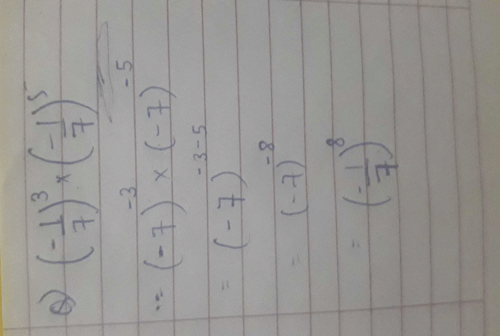 Q) (-1/7)^3 × (-1/7)^5
= (-7)^-3 × (-7)^-5
= (-7)^-3-5
= (-7)^-8
= (-1/7)^8